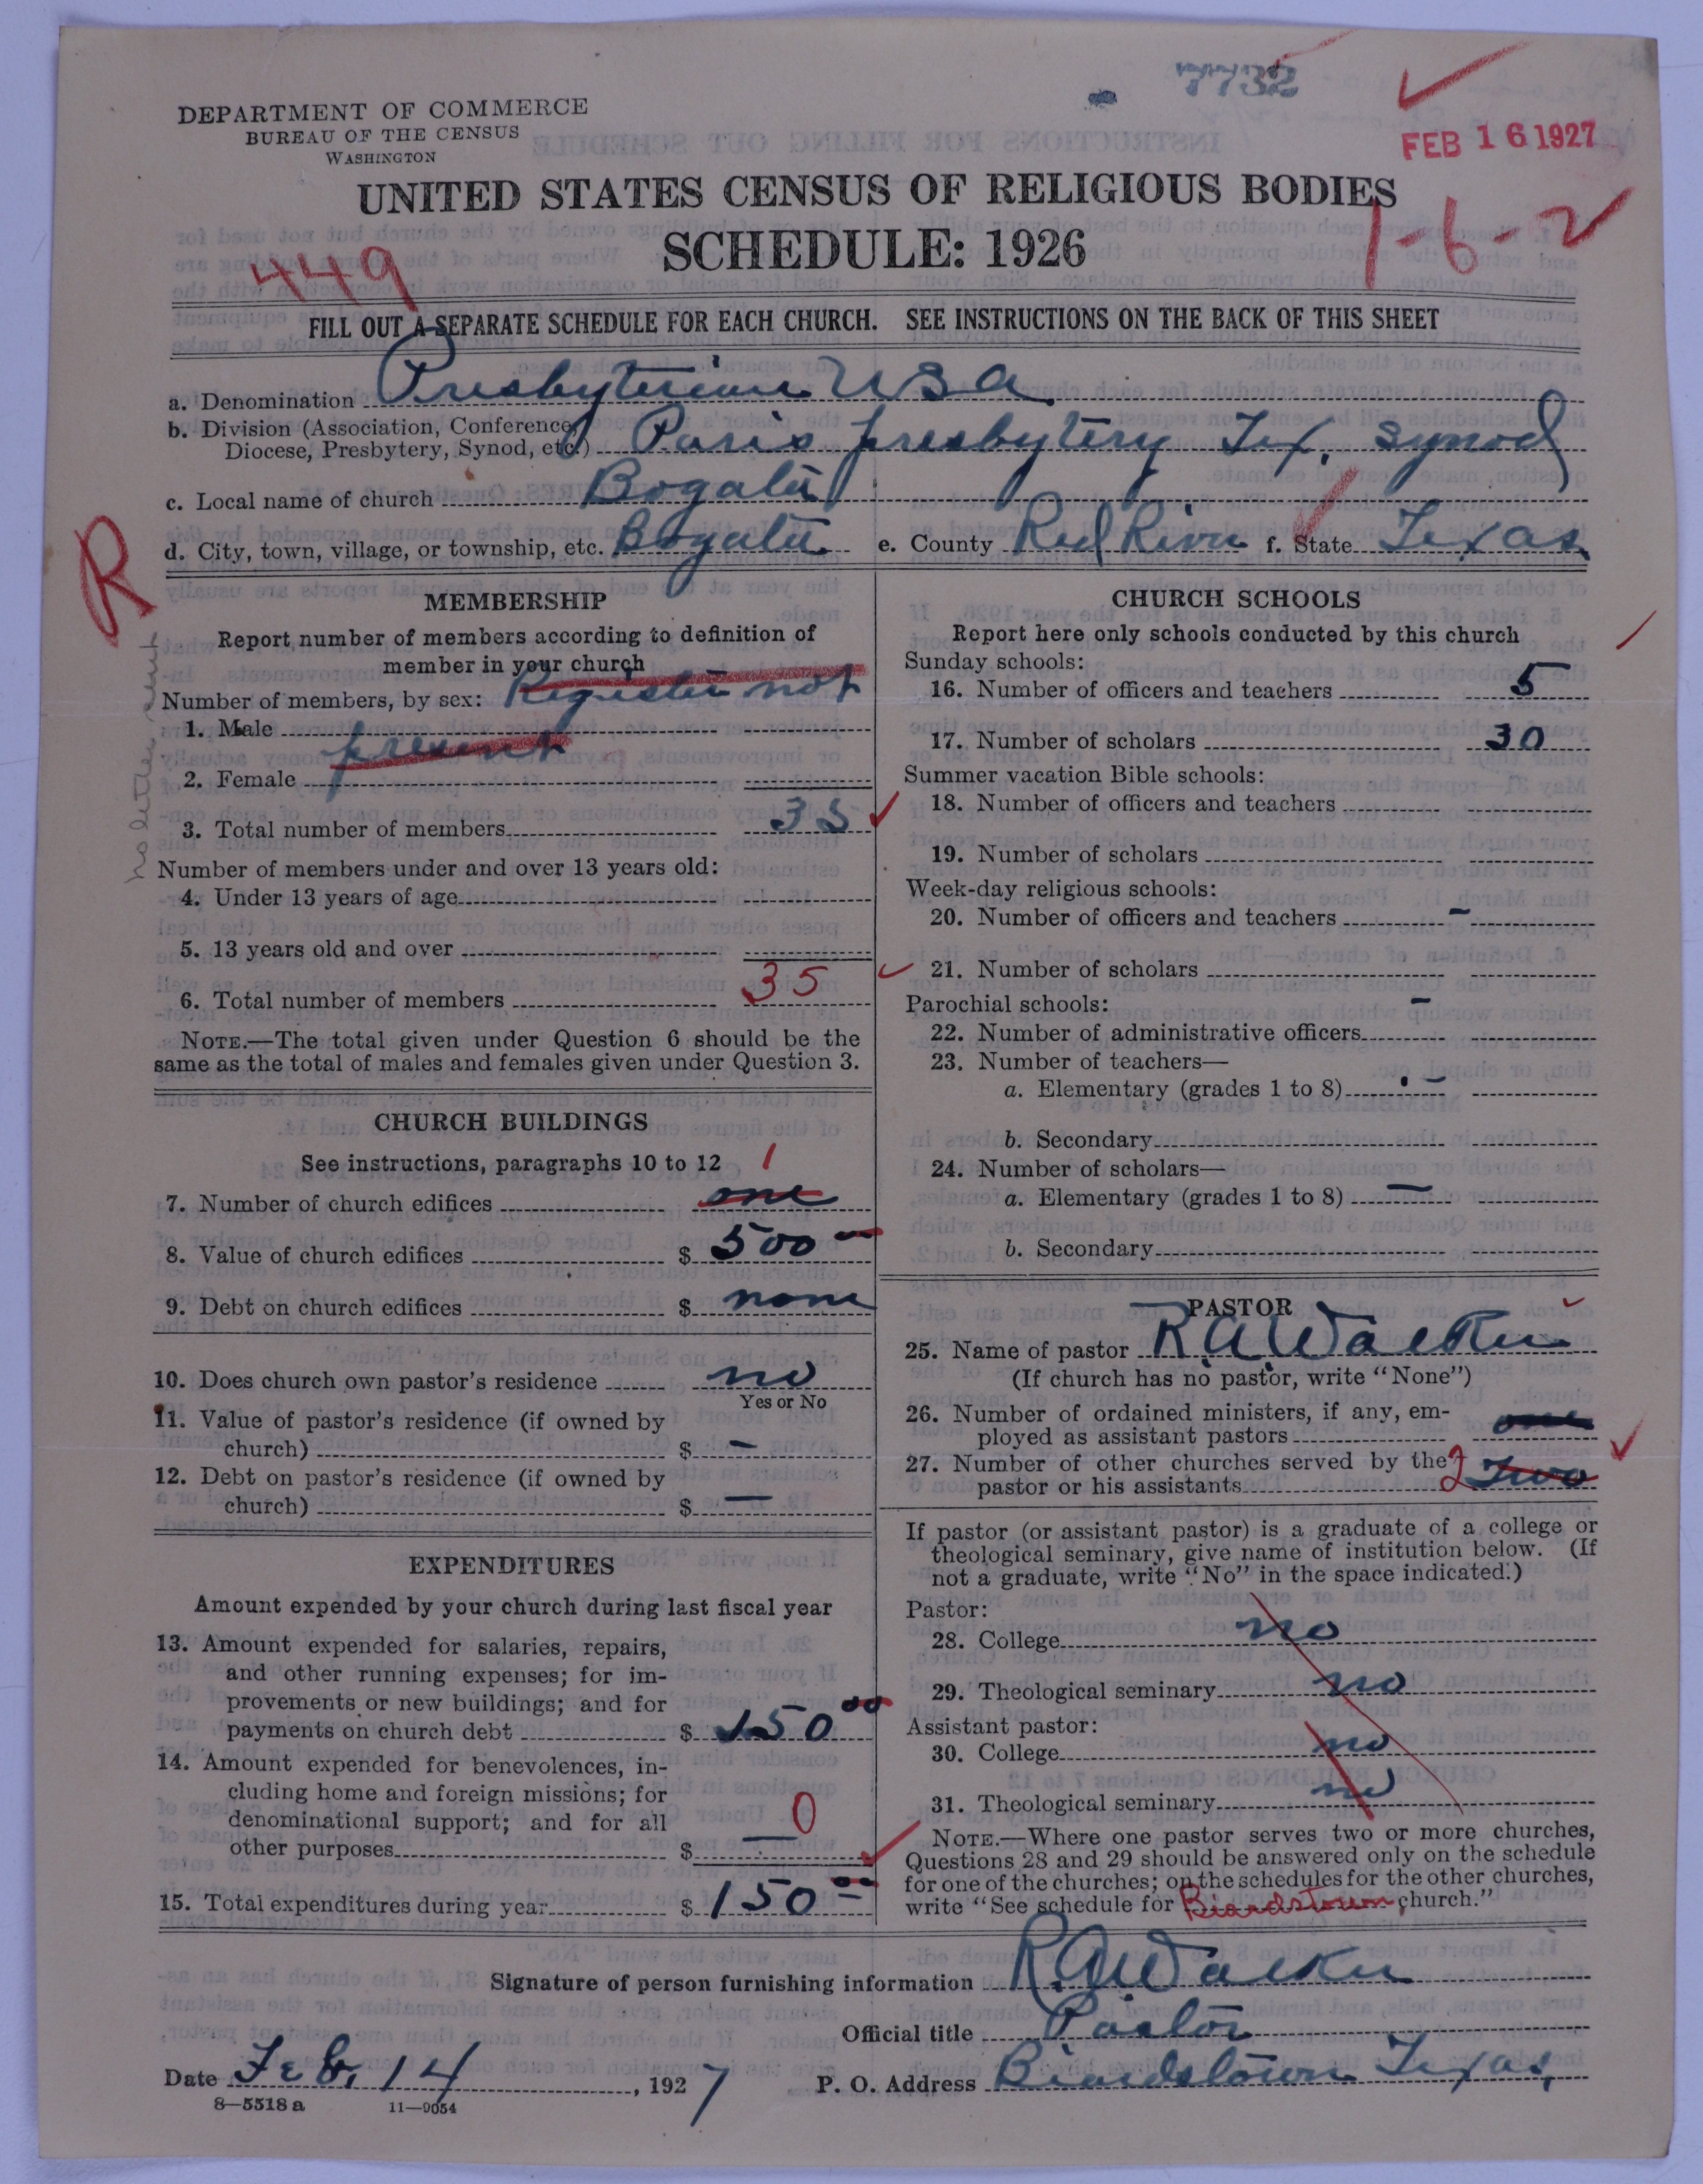 DEPARTMENT OF COMMERCE
BUREAU OF THE CENSUS
WASHINGTON
FEB 16 1927
UNITED STATES CENSUS OF RELIGIOUS BODIES
SCHEDULE: 1926
449
1-6-2
FILL OUT A SEPARATE SCHEDULE FOR EACH CHURCH. SEE INSTRUCTIONS ON THE BACK OF THIS SHEET
a. Denomination Presbyterian USA
b. Division (Association, Conference, Diocese, Presbytery, Synod, etc.) Paris presbytery Tex. Synod
c. Local name of church Bogata
d. City, town, village, or township, etc. Bogata e. County Red River f. State Texas
R
MEMBERSHIP
Report number of members according to definition of
member in your church
Number of members, by sex: Register not
1. Male present
2. Female
3. Total number of members 35
Number of members under and over 13 years old:
4. Under 13 years of age
5. 13 years old and over
6. Total number of members 35
NOTE.—The total given under Question 6 should be the
same as the total of males and females given under Question 3.
CHURCH BUILDINGS
See instructions, paragraphs 10 to 12
1
7. Number of church edifices one
8. Value of church edifices $ 500 —
9. Debt on church edifices $ none
10. Does church own pastor's residence no
Yes or No
11. Value of pastor's residence (if owned by
church) $ —
12. Debt on pastor's residence (if owned by
church) $ —
EXPENDITURES
Amount expended by your church during last fiscal year
13. Amount expended for salaries, repairs,
and other running expenses; for im-
provements or new buildings; and for
payments on church debt $ 150 00
14. Amount expended for benevolences, in-
cluding home and foreign missions; for
denominational support; and for all
other purposes $ — 0
15. Total expenditures during year $ 150 00
CHURCH SCHOOLS
Report here only schools conducted by this church
Sunday schools:
16. Number of officers and teachers 5
17. Number of scholars 30
Summer vacation Bible schools:
18. Number of officers and teachers
19. Number of scholars
Week-day religious schools:
20. Number of officers and teachers –
21. Number of scholars
Parochial schools: –
22. Number of administrative officers
23. Number of teachers—
a. Elementary (grades 1 to 8) –
b. Secondary
24. Number of scholars—
a. Elementary (grades 1 to 8) —
b. Secondary
PASTOR
25. Name of pastor R.A. Walker
(If church has no pastor, write "None")
26. Number of ordained ministers, if any, em-
ployed as assistant pastors one
27. Number of other churches served by the
pastor or his assistants 2 Two
If pastor (or assistant pastor) is a graduate of a college or
theological seminary, give name of institution below. (If
not a graduate, write "No" in the space indicated.)
Pastor:
28. College no
29. Theological seminary no
Assistant pastor:
30. College no
31. Theological seminary no
NOTE.—Where one pastor serves two or more churches,
Questions 28 and 29 should be answered only on the schedule
for one of the churches; on the schedules for the other churches,
write "See schedule for Biardstown church."
Signature of person furnishing information R.A. Walker
Official title Pastor
Date Feb. 14, 1927 P. O. Address Biardstown Texas,
8—5518 a 11—9054